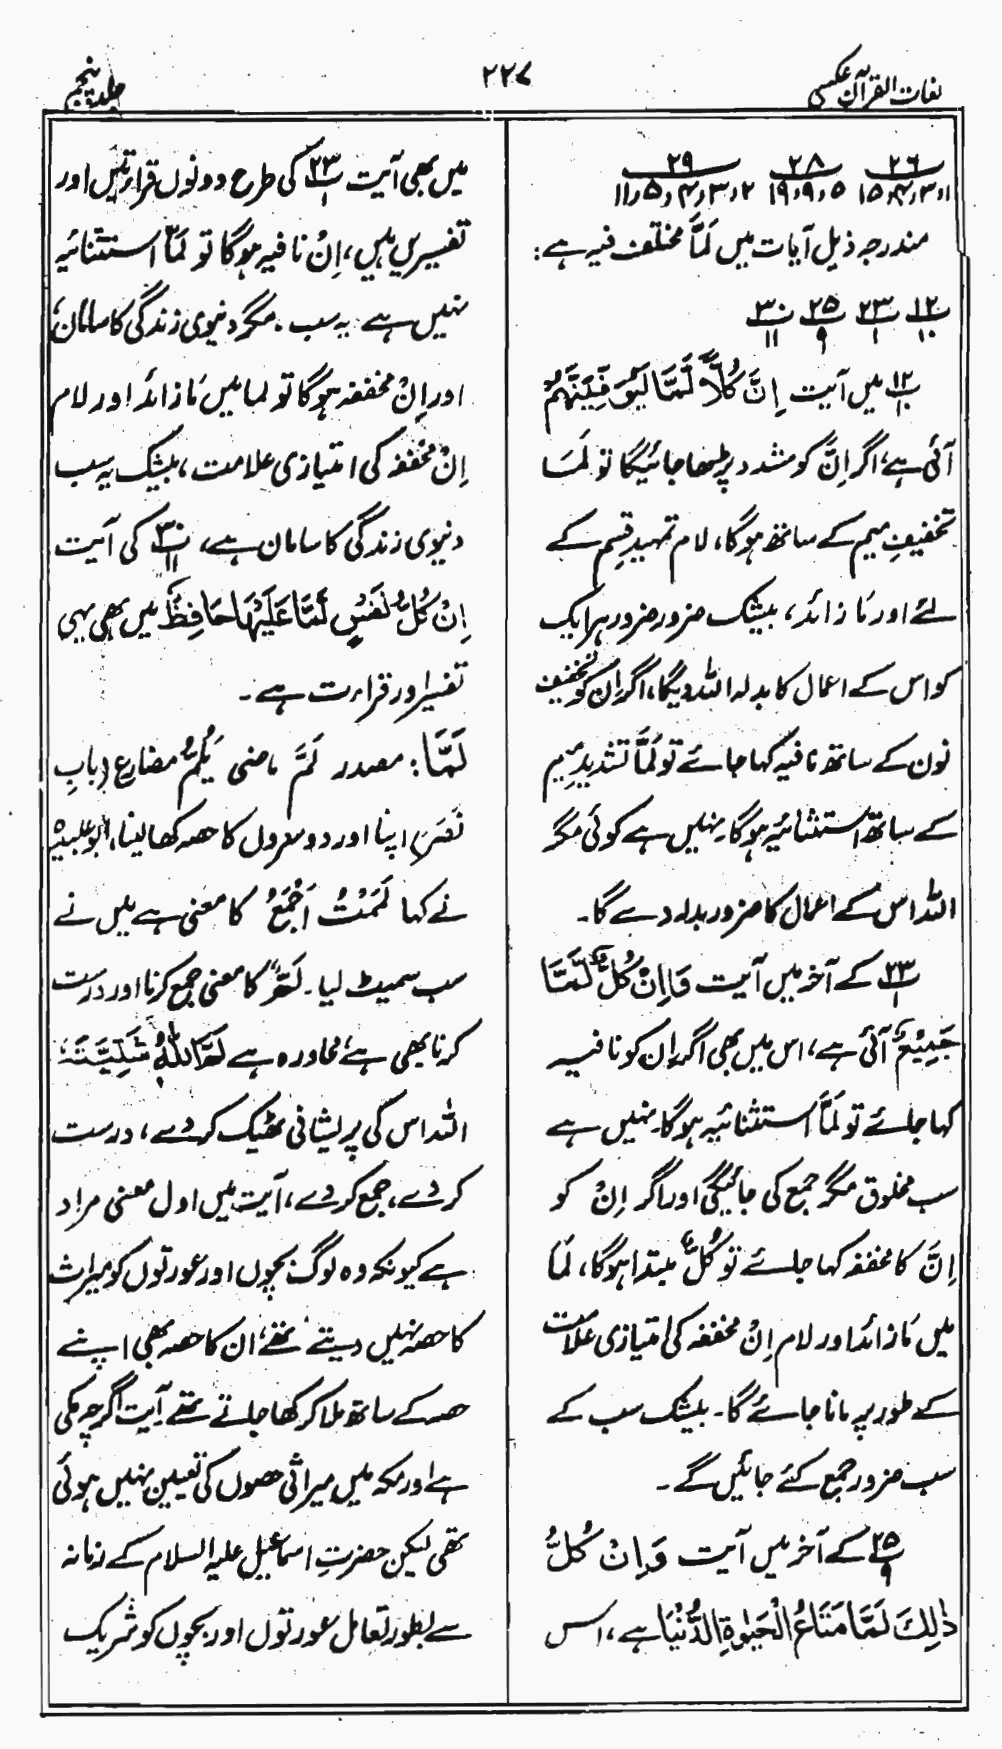 لغات القرآن عکسی
۲۲۷
جلد پنجم
۲۶ ۲۸ ۲۹
۱و۳و۴و۱۵ ۵و۹و۱۹ ۲و۳و۴و۵و۱۱
مندرجہ ذیل آیات میں لَمَّا مختلف فیہ ہے:
۱۲/۱۰ ۲۳/۱ ۲۵/۹ ۳۰/۱۱
۱۲/۱۰ میں آیت اِنَّ کُلًّا لَّمَّا لَیُوَفِّیَنَّهُمْ
آئی ہے، اگر اِنَّ کو مشدد پڑھا جائیگا تو لَمَا
تخفیفِ میم کے ساتھ ہوگا، لام تمہیدِ قسم کے
لئے اور مَا زائد، بیشک ضرور ضرور ہر ایک
کو اس کے اعمال کا بدلہ اللہ دیگا، اگر اِن کو تخفیف
نون کے ساتھ نافیہ کہا جائے تو لَمَّا تشدیدِ میم
کے ساتھ استثنائیہ ہوگا۔ نہیں ہے کوئی مگر
اللہ اس کے اعمال کا ضرور بدلہ دے گا۔
۲۳/۱ کے آخر میں آیت وَاِنْ کُلٌّ لَّمَّا
جَمِیْعٌ آئی ہے، اس میں بھی اگر اِن کو نافیہ
کہا جائے تو لَمَّا استثنائیہ ہوگا۔ نہیں ہے
سب مخلوق مگر جمع کی جائیگی اور اگر اِنْ کو
اِنَّ کا مخففہ کہا جائے تو کُلٌّ مبتدا ہوگا، لَمَا
میں مَا زائد اور لام اِنْ مخففہ کی امتیازی علامت
کے طور پر مانا جائے گا۔ بیشک سب کے
سب ضرور جمع کئے جائیں گے۔
۲۵/۹ کے آخر میں آیت وَاِنْ کُلُّ
ذٰلِکَ لَمَّا مَتَاعُ الْحَیٰوةِ الدُّنْیَا ہے، اس
میں بھی آیت ۲۳/۱ کی طرح دونوں قراءتیں اور
تفسیریں ہیں، اِنْ نافیہ ہوگا تو لَمَّا استثنائیہ
نہیں ہے یہ سب۔ مگر دنیوی زندگی کا سامان،
اور اِنْ مخففہ ہوگا تو لما میں مَا زائد اور لام
اِنْ مخففہ کی امتیازی علامت، بیشک یہ سب
دنیوی زندگی کا سامان ہے، ۳۰/۱۱ کی آیت
اِنْ کُلُّ نَفْسٍ لَّمَّا عَلَیْهَا حَافِظٌ میں بھی یہی
تفسیر اور قراءت ہے۔
لَمَّا: مصدر لَمَّ ماضی یَلُمُّ مضارع (بابِ
نَصَرَ) اپنا اور دوسروں کا حصہ کھا لینا، ابو عبیدہ
نے کہا لَمَمْتُ اَجْمَعُ کا معنی ہے میں نے
سب سمیٹ لیا۔ لَمٌّ کا معنی جمع کرنا اور درست
کرنا بھی ہے، محاورہ ہے لَمَّ اللّٰهُ
اللہ اس کی پریشانی ٹھیک کردے، درست
کردے، جمع کردے، آیت میں اول معنی مراد
ہے کیونکہ وہ لوگ بچوں اور عورتوں کو میراث
کا حصہ نہیں دیتے تھے، ان کا حصہ بھی اپنے
حصہ کے ساتھ ملا کر کھا جاتے تھے آیت اگرچہ مکی
ہے اور مکہ میں میراثی حصوں کی تعیین نہیں ہوئی
تھی لیکن حضرتِ اسماعیل علیہ السلام کے زمانہ
سے بطور تعامل عورتوں اور بچوں کو شریک